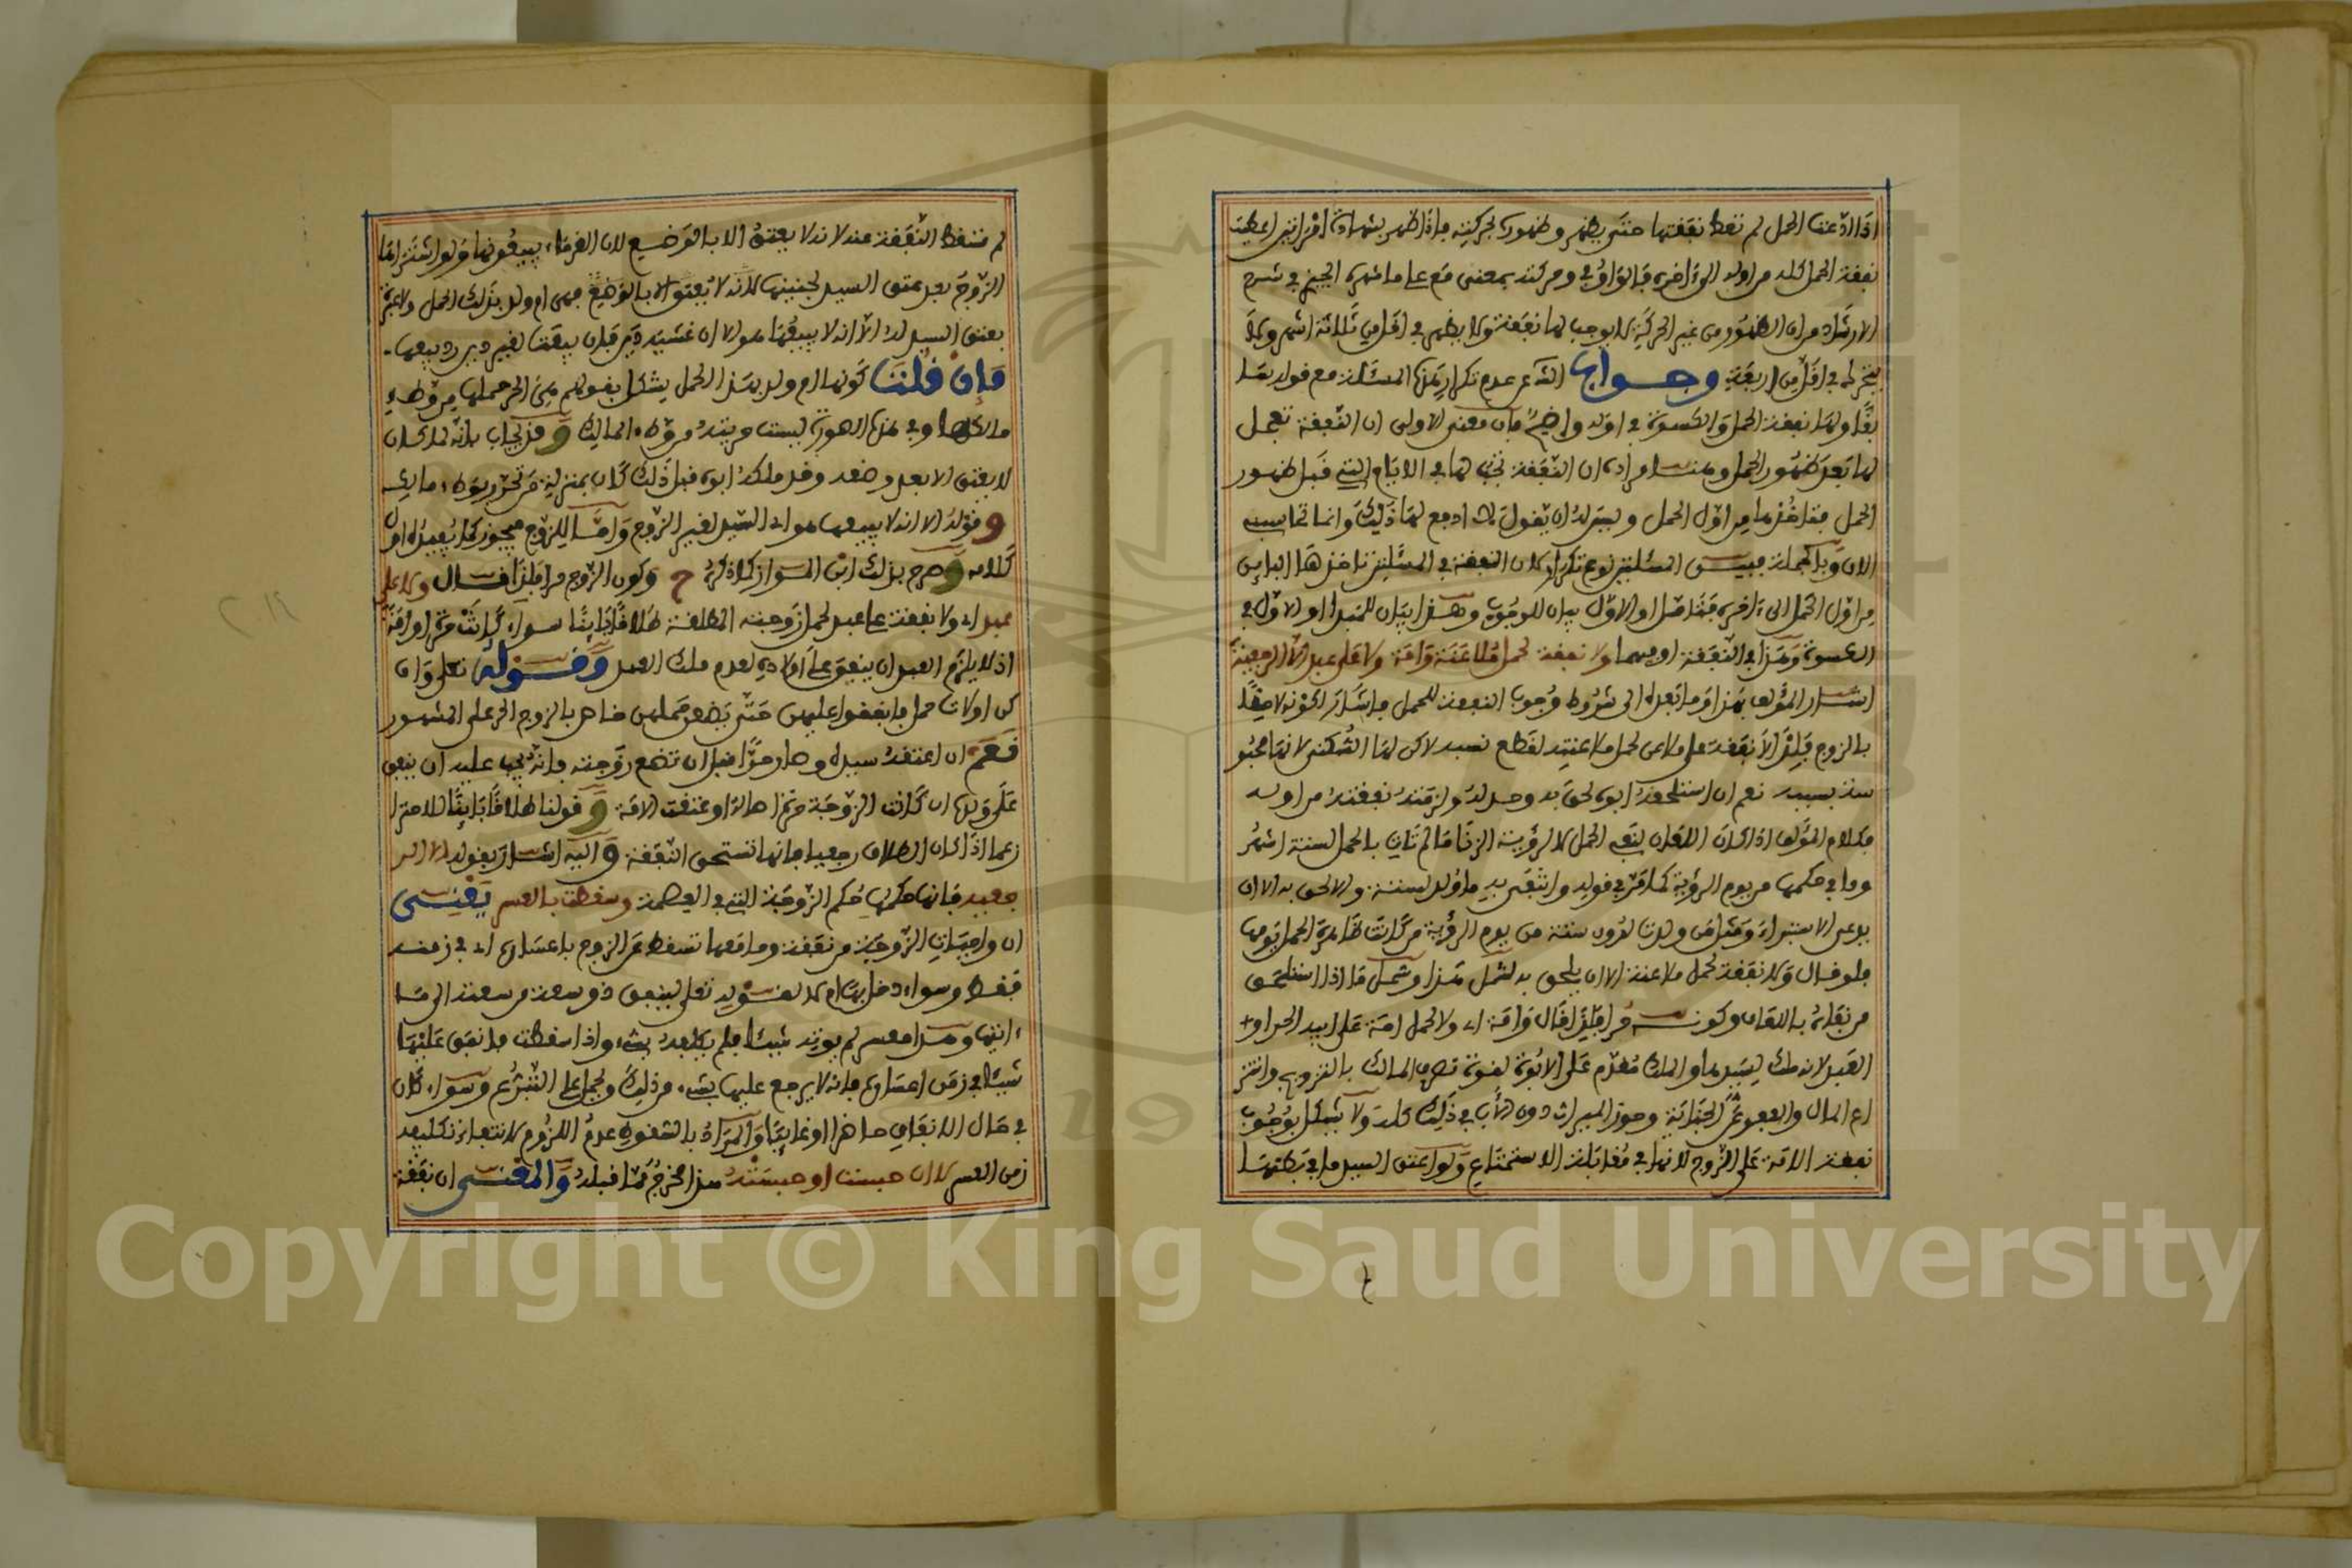 اذا ادعت الحمل لم تعط نفقتها حتى يظهر وظهوره بحركته فاذا ظهر بشهادة امراتين اعطيت
نفقة الحمل كله من اوله الى اخره فالواو في وحركته بمعنى مع على ما شهره الجيزي في شرح
الارشاد من ان الظهور من غير الحركة لا يوجب لها نفقة ولا يظهر في اقل من ثلاثة اشهر ولا
يتحرك في اقل من اربعة وجواب الشـ عن عدم تكرار هذه المسئلة مع قوله بما
بقا ولها نفقة الحمل والكسوة في اوله واضح فان معنى الاولى ان النفقة تجعل
لها بعد ظهور الحمل وليس المراد ان النفقة تجب لها في الايام التي قبل ظهور
الحمل فتاخذها من اول الحمل وليس له ان يقول لا ادفع لها ذلك وانما تحاسبيه
الان وبالجملة فبين المسئلتين نوع تكرار لان النفقة في المسئلتين تاخذها الباين
من اول الحمل الى اخره فتامل او الاول بيان للوجوب وهذا بيان للمبدا او الاول في
الكسوة وهذا في النفقة او فيهما ولا نفقة لحمل ملاعنة وامة ولا على عبد الا الرجعية
اشار المؤلف بهذا وما بعده الى شروط وجوب النفقة للحمل فاشار لكونه لاحقا
بالزوج فلذا لا نفقة على ملاعن لحمل ملاعنته لقطع نسبه لاكن لها السكنى لانها محبو
سة بسببه نعم ان استلحقه ابوه لحق به وحد له ولزمته نفقته من اوله
فكلام المؤلف اذا كان اللعان لنفي الحمل لا لرؤية الزنا ما لم تات بالحمل لستة اشهر
وما في حكمها من يوم الرؤية كما مر في قوله وانتفى به ما ولد لستة والا لحق به الا ان
يدعي الاستبراء ومثل من ولدت لدون ستة من يوم الرؤية من كانت ظاهرة الحمل يومها
فلو قال ولا نفقة لحمل ملاعنة الا ان يلحق به لشمل هذا وشمل ما اذا استلحق
من نفاه باللعان وكونه حرا فلذا قال وامة اي ولا لحمل امة على ابيه الحر او
العبد لانه ملك لسيدها والملك مقدم على الابوة لقوة تصرف المالك بالتزويج وانتز
اع المال والعفو عن الجناية وحوز الميراث دون الاب في ذلك كله ولا يشكل بوجوب
نفقة الامة على الزوج لانها في مقابلة الاستمتاع ولو اعتق السيد ما في بطنها
لم تسقط النفقة عنه لانه لا يعتق الا بالوضع لان الغرماء يبيعونها ولو اشتراها
الزوج بعد عتق السيد لجنينها لانه لا يعتق الا بالوضع فهي ام ولد بذلك الحمل ولا عبرة
بعتق السيد له الا انه لا يبيعها هو الا ان غشيه دين فان بيعت لغير دين رد بيعها
فإن قلت كونها ام ولد بهذا الحمل يشكل بقولهم هي الحر حملها من وطء
مالكها وفي هذه الصورة ليست حريته من وطء المالك وقد يجاب بانه لما كان
لا يعتق الا بعد وضعه وقد ملكه ابوه قبل ذلك كان بمنزلة من تحرر بوطء مالك
وقوله الا انه لا يبيعها هو اي السيد لغير الزوج واما للزوج فيجوز كما يفيده اول
كلامه وصرح بذلك ابن المواز كما ذكره ح وكون الزوج حرا فلذا قال ولا على
عبد اي ولا نفقة على عبد لحمل زوجته المطلقة طلاقا باينا سواء كانت حرة او امة
اذ لا يلزم العبد ان ينفق على اولاده لعدم ملك العبد وقوله تعلى وان
كن اولات حمل فانفقوا عليهن حتى يضعن حملهن خاص بالزوج الحر على المشهور
نعم ان اعتقه سيده وصار حرا قبل ان تضع زوجته فانه يجب عليه ان ينفق
على ولدها ان كانت الزوجة حرة اصالة او عتقت الامة وقولنا طلاقا باينا للاحترا
ز عما اذا كان الطلاق رجعيا فانها تستحق النفقة واليه اشار بقوله الا الر
جعية فانها حكمها حكم الزوجة التي في العصمة وسقطت بالعسر يعني
ان واجبات الزوجية من نفقة وما معها تسقط عن الزوج باعساره اي في زمنه
فقط وسواء دخل بها ام لا لقوله تعلى لينفق ذو سعة من سعته الى ما
اتيها وهذا معسر لم يوته شيئا فلم يكلفه بشيء واذا سقطت فانفق عليها
شيئا في زمن اعساره فانه لا يرجع عليها بشيء من ذلك ويحمل على التبرع وسواء كان
في حال الانفاق حاضرا او غايبا والمراد بالسقوط عدم اللزوم لانتفاء تكليفه
زمن العسر لا ان حبست او حبسته هذا مخرج مما قبله والمعنى ان نفقة